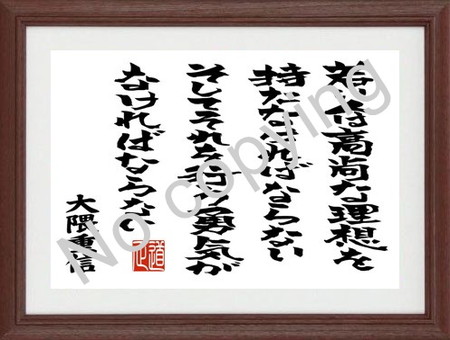 は高尚な理想を
持たなければならない
そしてそれを行う勇気が
なければならない
大隈重信
No copying